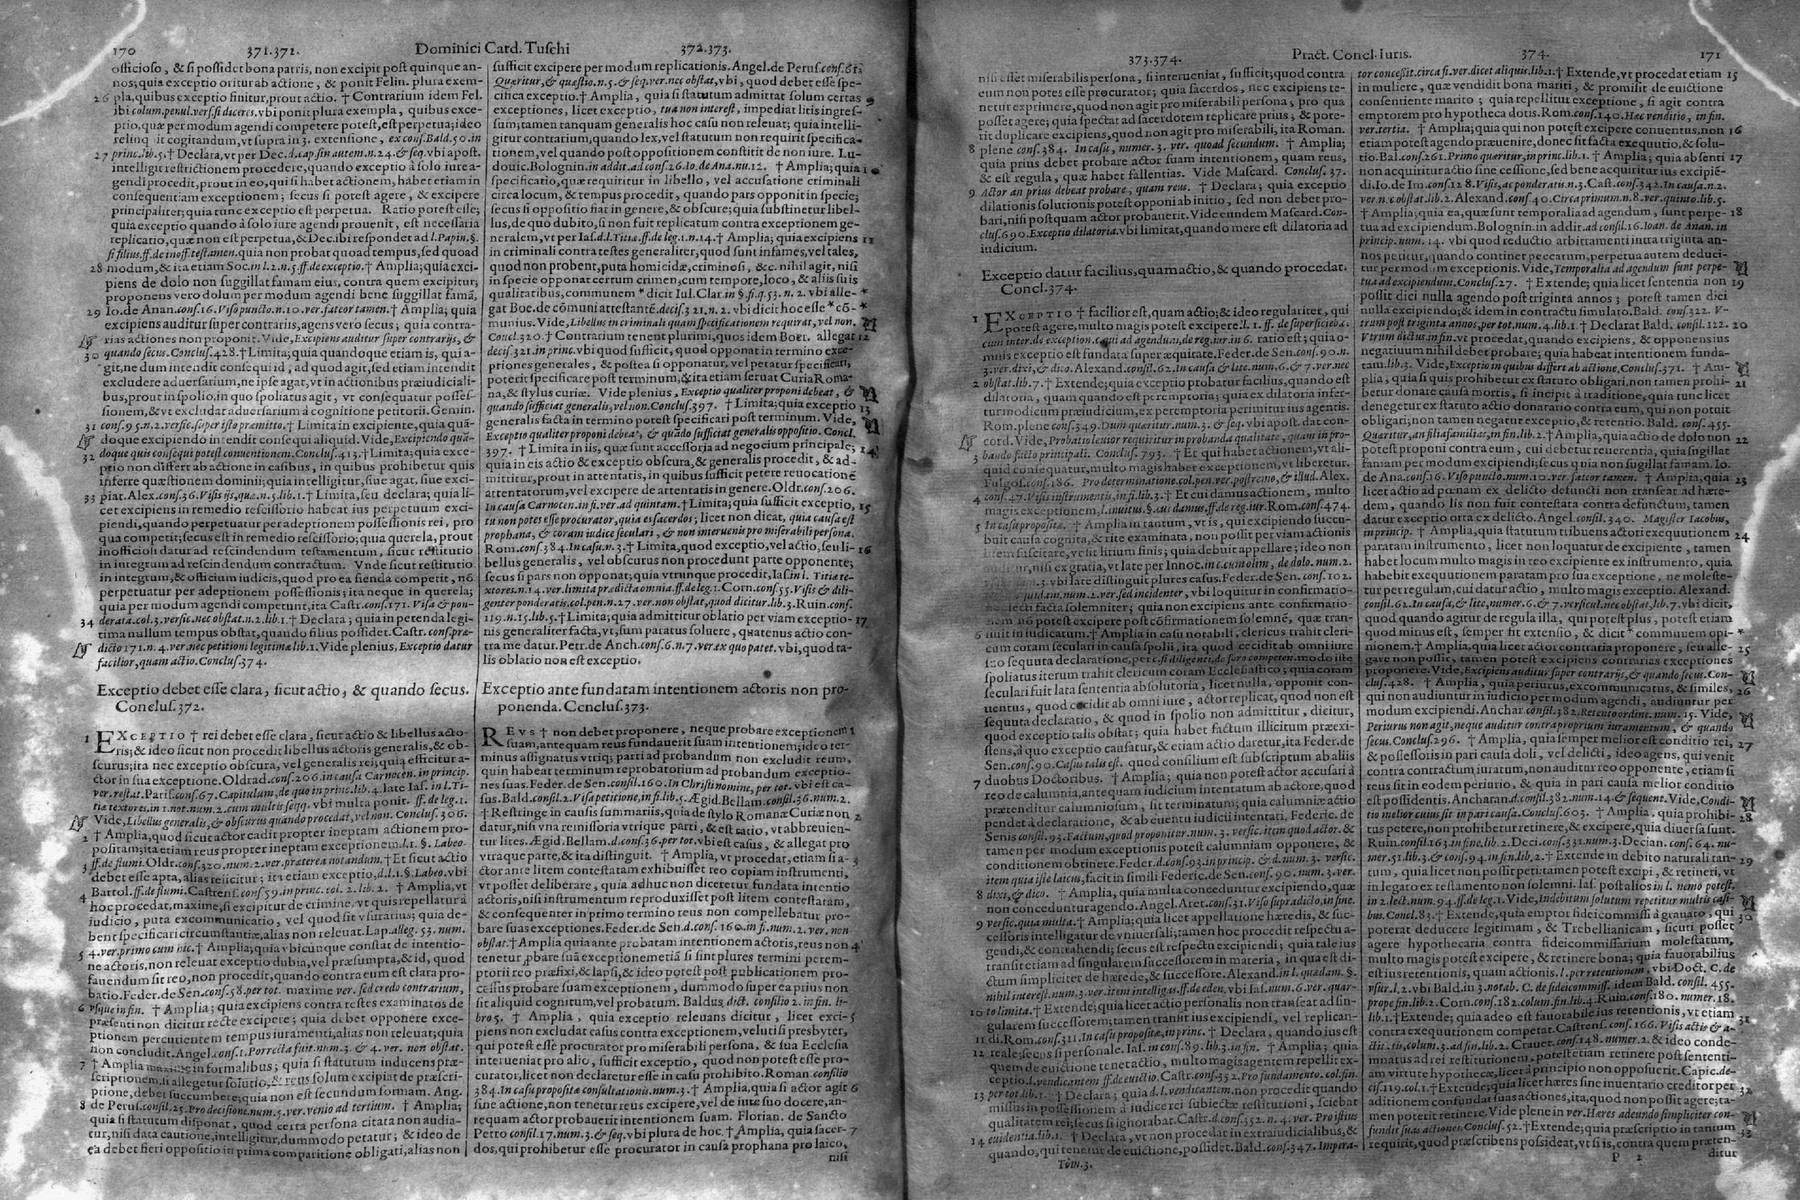 170 371.371. Dominici Card. Tuschi 372.373.
officioso, & si possidet bona patris, non excipit post quinque an-
nos; quia exceptio oritur ab actione, & ponit Felin. plura exem-
26 pla, quibus exceptio finitur, prout actio. † Contrarium idem Fel.
ibi colum. penul. vers. si diceres, vbi ponit plura exempla, quibus exce-
ptio, quæ per modum agendi competere potest, est perpetua; ideo
cogitandum, vt supra in 3. extensione, ex cons. Bald. 50. in
27 princ. lib. 5. † Declara, vt per Dec. d. cap. fin autem. n. 24. & seq. vbi apost.
intelligit restrictionem procedere, quando exceptio à solo iure a-
gendi procedit, prout in eo, qui si habet actionem, haberet etiam in
consequentiam exceptionem; secus si potest agere, & excipere
principaliter; quia tunc exceptio est perpetua. Ratio potest esse;
quia exceptio quando à solo iure agendi prouenit, est necessaria
replicatio, quæ non est perpetua, & Dec. ibi respondet ad l. Papin. §.
si filius. ff. de inoff. testamen. quia non probat quoad tempus, sed quoad
28 modum, & ita etiam Soc. in l. 2. n. 5. ff. de exceptio. † Amplia; quia exci-
piens de dolo non suggillat famam eius, contra quem excipitur;
proponens vero dolum per modum agendi bene suggillat famā,
29 Io. de Anan. cons. 16. Viso puncto. n. 10. ver. fatcor tamen. † Amplia; quia
excipiens auditur super contrariis, agens vero secus; quia contra-
rias actiones non proponit. Vide, Excipiens auditur super contrarijs, &
30 quando secus. Conclus. 428. † Limita; quia quandoque etiam is, qui a-
git, ne dum intendit consequi id, ad quod agit, sed etiam intendit
excludere aduersarium, ne ipse agat, vt in actionibus præiudiciali-
bus, prout in spolio, in quo spoliatus agit, vt consequatur posses-
sionem, & vt excludat aduersarium à cognitione petitorii. Gemin.
31 cons. 95. n. 2. versic. super isto præmitto. † Limita in excipiente, quia quā-
doque excipiendo intendit consequi aliquid. Vide, Excipiendo quā-
32 doque quis consequi potest conuentionem. Conclus. 413. † Limita; quia exce-
ptio non differt ab actione in casibus, in quibus prohibetur quis
inferre quæstionem dominii; quia intelligitur, siue agat, siue exci-
33 piat. Alex. cons. 36. Visis ijs, quæ. n. 5. lib. 1. † Limita, seu declara; quia li-
cet excipiens in remedio rescissorio habeat ius perpetuum exci-
piendi, quando perpetuatur per adeptionem possessionis rei, pro
qua competit; secus est in remedio rescissorio; quia querela, prout
inofficiosi datur ad rescindendum testamentum, sicut restitutio
in integrum ad rescindendum contractum. Vnde sicut restitutio
in integrum, & officium iudicis, quod pro ea fienda competit, nō
perpetuatur per adeptionem possessionis; ita neque in querela;
quia per modum agendi competunt, ita Castr. cons. 171. Visa & pon-
34 derata. col. 3. versic. nec obstat. n. 2. lib. 1. † Declara; quia in petenda legi-
tima nullum tempus obstat, quando filius possidet. Castr. cons. præ-
dicto 171. n. 4. ver. nec petitioni legitimæ lib. 1. Vide plenius, Exceptio datur
facilior, quam actio. Conclus. 374.
Exceptio debet esse clara, sicut actio, & quando secus.
Conclus. 372.
1 EXCEPTIO † rei debet esse clara, sicut actio & libellus acto-
ris; & ideo sicut non procedit libellus actoris generalis, & ob-
scurus; ita nec exceptio obscura, vel generalis rei; quia efficitur a-
ctor in sua exceptione. Oldrad. cons. 206. in causa Carnocen. in princip.
ver. restat. Paris. cons. 67. Capitulum, de quo in princ. lib. 4. late Ias. in l. Ti-
tiæ textores, in 1. not. num. 2. cum multis seqq. vbi multa ponit. ff. de leg. 1.
Vide, Libellus generalis, & obscurus quando procedat, vel non. Conclus. 306.
2 † Amplia, quod sicut actor cadit propter ineptam actionem pro-
positam; ita etiam reus propter ineptam exceptionem. l. 1. §. Labeo.
3 ff. de flumi. Oldr. cons. 320. num. 2. ver. præterea notandum. † Et sicut actio
debet esse apta, alias reiicitur; ita etiam exceptio, d. l. 1. §. Labeo. vbi
4 Bartol. ff. de flumi. Castrens. cons. 59. in princ. col. 2. lib. 2. † Amplia, vt
hoc procedat, maxime, si excipitur de crimine, vt quis repellatur à
iudicio, puta excommunicatio, vel quod sit vsurarius; quia de-
bent specificari circumstantiæ, alias non releuat. Lap. alleg. 53. num.
5 4. ver. primo cum hic. † Amplia; quia vbicunque constat de intentio-
ne actoris, non releuat exceptio dubia, vel præsumpta, & id, quod
fauendum sit reo, non procedit, quando contra eum est clara pro-
batio. Feder. de Sen. cons. 58. per tot. maxime ver. sed credo contrarium,
6 vsque in fin. † Amplia; quia excipiens contra testes examinatos de
præsenti non dicitur recte excipere; quia debet opponere exce-
ptionem percutientem tempus iuramenti, alias non releuat; quia
non concludit. Angel. cons. 1. Porrecta fuit. num. 3. & 4. ver. non obstat.
7 † Amplia maxime in formalibus; quia si statutum inducens præ-
scriptionem, si allegetur solutio, & reus solum excipiat de præscri-
ptione, debet succumbere; quia non est secundum formam. Ang.
8 de Perus. consil. 25. Pro decisione. num. 3. ver. venio ad tertium. † Amplia;
quia si statutum disponat, quod certa persona citata non audia-
tur, nisi data cautione, intelligitur, dummodo petatur; & ideo de
ea debet fieri oppositio in prima comparitione obligati, alias non
sufficit excipere per modum replicationis. Angel. de Perus. cons. 61.
Quæritur, & quæstio. n. 5. & seq. ver. nec obstat, vbi, quod debet esse spe-
cifica exceptio. † Amplia, quia si statutum admittat solum certas 9
exceptiones, licet exceptio, tua non interest, impediat litis ingres-
sum; tamen tanquam generalis hoc casu non releuat; quia intelli-
gitur contrarium, quando lex, vel statutum non requirit specifica-
tionem, vel quando post oppositionem constitit de non iure. Lu-
douic. Bolognin. in addit. ad cons. 26. Io. de Ana. nu. 12. † Amplia; quia 10
specificatio, quæ requiritur in libello, vel accusatione criminali
circa locum, & tempus procedit, quando pars opponit in specie;
secus si oppositio fiat in genere, & obscure; quia substinetur libel-
lus, de quo dubito, si non fuit replicatum contra exceptionem ge-
neralem, vt per Ias. d. l. Titiæ. ff. de leg. 1. n. 14. † Amplia; quia excipiens 11
in criminali contra testes generaliter; quod sunt infames, vel tales,
quod non probent, puta homicidæ, criminosi, &c. nihil agit, nisi
in specie opponat certum crimen, cum tempore, loco, & aliis suis
qualitatibus, communem * dicit Iul. Clar. in §. fi. q. 53. n. 2. vbi alle-
gat Boe. de cōmuni attestante. decis. 321. n. 2. vbi dicit hoc esse * cō-
munius. Vide, Libellus in criminali quam specificationem requirat, vel non.
Concl. 320. † Contrarium tenent plurimi, quos idem Boer. allegat 12
decis. 321. in princ. vbi quod sufficit, quod opponat in termino exce-
priones generales, & postea si opponatur, vel petatur specificari,
poterit specificare post terminum; & ita etiam seruat Curia Roma-
na, & stylus curiæ. Vide plenius, Exceptio qualiter proponi debeat, &
quando sufficiat generalis, vel non. Conclus. 397. † Limita; quia exceptio 13
generalis facta in termino potest specificari post terminum. Vide,
Exceptio qualiter proponi debeat, & quādo sufficiat generalis oppositio. Concl.
397. † Limita in iis, quæ sunt accessoria ad negocium principale; 14
quia in eis actio & exceptio obscura, & generalis procedit, & ad-
mittitur, prout in attentatis, in quibus sufficit petere reuocationē
attentatorum, vel excipere de attentatis in genere. Oldr. cons. 206.
In causa Carnocen. in fi. ver. ad quintam. † Limita; quia sufficit exceptio, 15
tu non potes esse procurator, quia es sacerdos; licet non dicat, quia causa est
prophana, & coram iudice seculari, & non interuenis pro miserabili persona.
Rom. cons. 384. In casu. n. 3. † Limita, quod exceptio, vel actio, seu li- 16
bellus generalis, vel obscurus non procedunt parte opponente;
secus si pars non opponat; quia vtrunque procedit, Ias. in l. Titiæ te-
xtores. n. 14. ver. limita prædicta omnia. ff. de leg. 1. Corn. cons. 55. Visis & dili-
genter ponderatis. col. pen. n. 27. ver. non obstat, quod dicitur. lib. 3. Ruin. cons.
119. n. 15. lib. 5. † Limita; quia admittitur oblatio per viam exceptio- 17
nis generaliter facta, vt, sum paratus soluere, quatenus actio con-
tra me datur. Petr. de Anch. cons. 6. n. 7. ver. ex quo patet. vbi, quod ta-
lis oblatio non est exceptio.
Exceptio ante fundatam intentionem actoris non pro-
ponenda. Conclus. 373.
REVS † non debet proponere, neque probare exceptionem 1
suam, antequam reus fundauerit suam intentionem; ideo ter-
minus assignatus vtriq; parti ad probandum non excludit reum,
quin habeat terminum reprobatorium ad probandum exceptio-
nes suas. Feder. de Sen. consil. 160. In Christi nomine, per tot. vbi est ca-
sus. Bald. consil. 2. Visa petitione, in fi. lib. 5. Ægid. Bellam. consil. 36. num. 2.
† Restringe in causis summariis, quia de stylo Romanæ Curiæ non 2
datur, nisi vna remissoria vtrique parti, & est ratio, vt abbreuien-
tur lites. Ægid. Bellam. d. cons. 36. per tot. vbi est casus, & allegat pro
vtraque parte, & ita distinguit. † Amplia, vt procedat, etiam si a- 3
ctor ante litem contestatam exhibuisset reo copiam instrumenti,
vt posset deliberare, quia adhuc non diceretur fundata intentio
actoris, nisi instrumentum reproduxisset post litem contestatam,
& consequenter in primo termino reus non compellebatur pro-
bare suas exceptiones. Feder. de Sen. d. cons. 160. in fi. num. 2. ver. non
obstat. † Amplia quia ante probatam intentionem actoris, reus non 4
tenetur probare suā exceptionem etiā si sint plures termini perem-
ptorii reo præfixi, & lapsi, & ideo potest post publicationem pro-
cessus probare suam exceptionem, dummodo super ea prius non
sit aliquid cognitum, vel probatum. Baldus dict. consilio 2. in fin. li-
bro 5. † Amplia, quia exceptio releuans dicitur, licet exci- 5
piens non excludat casus contra exceptionem, veluti si presbyter,
qui potest esse procurator pro miserabili persona, & sua Ecclesia
interueniat pro alio, sufficit exceptio, quod non potest esse pro-
curator, licet non declaretur esse in casu prohibito. Roman. consilio
384. In casu proposita consultationis num. 3. † Amplia, quia si actor agit 6
sine actione, non tenetur reus excipere, vel de iure suo docere, an-
tequam actor probauerit intentionem suam. Florian. de Sancto
Petro consil. 17. num. 3. & seq. vbi plura de hoc. † Amplia, quia sacer- 7
dos, qui prohibetur esse procurator in causa prophana pro laico,
nisi
373.374. Pract. Concl. Iuris. 374. 171
nisi esset miserabilis persona, si interueniat, sufficit; quod contra
eum non potes esse procurator; quia sacerdos, nec excipiens te-
netur exprimere, quod non agit pro miserabili persona, pro qua
posset agere; quia spectat ad sacerdotem replicare prius; & pote-
rit duplicare excipiens, quod non agit pro miserabili, ita Roman.
8 plene cons. 384. In casu, numer. 3. ver. quoad secundum. † Amplia;
quia prius debet probare actor suam intentionem, quam reus,
& est regula, quæ habet fallentias. Vide Mascard. Conclus. 37.
9 Actor an prius debeat probare, quam reus. † Declara; quia exceptio
dilationis solutionis potest opponi ab initio, sed non debet pro-
bari, nisi postquam actor probauerit. Vide eundem Mascard. Con-
clus. 690. Exceptio dilatoria. vbi limitat, quando mere est dilatoria ad
iudicium.
Exceptio datur facilius, quam actio, & quando procedat.
Concl. 374.
1 EXCEPTIO † facilior est, quam actio; & ideo regulariter, qui
potest agere, multo magis potest excipere. l. 1. ff. de superficieb. c.
cum inter. de exception. c. qui ad agendum, de reg. iur. in 6. ratio est; quia o-
mnis exceptio est fundata super æquitate. Feder. de Sen. cons. 90. n.
3. ver. dixi, & dico. Alexand. cons. 62. In causa & lite. num. 6. & 7. ver. nec
2 obstat. lib. 7. † Extende; quia exceptio probatur facilius, quando est
dilatoria, quam quando est peremptoria; quia ex dilatoria infer-
tur modicum præiudicium, ex peremptoria perimitur ius agentis.
Rom. plene cons. 349. Dum quæritur. num. 3. & seq. vbi apost. dat con-
cord. Vide, Probatio leuior requiritur in probanda qualitate, quam in pro-
3 bando facto principali. Conclus. 793. † Et qui habet actionem, vt ali-
quid consequatur, multo magis habet exceptionem, vt liberetur.
Fulgos. cons. 186. Pro determinatione. col. pen. ver. postremo, & illud. Alex.
4 cons. 47. Visis instrumentis, in fi. lib. 3. † Et cui damus actionem, multo
magis exceptionem, l. inuitus. §. cui damus. ff. de reg. iur. Rom. cons. 474.
5 In casu propositæ. † Amplia in tantum, vt is, qui excipiendo succu-
buit causa cognita, & rite examinata, non possit per viam actionis
litem suscitare, vt sit litium finis; quia debuit appellare; ideo non
auditur, nisi ex gratia, vt late per Innoc. in c. cum olim, de dolo. num. 2.
3. vbi late distinguit plures casus. Feder. de Sen. cons. 102.
quidam. num. 2. ver. sed incidenter, vbi loquitur in confirmatio-
ne laudi facta solemniter; quia non excipiens ante confirmatio-
nem nō potest excipere post cōfirmationem solemnē, quæ tran-
6 siuit in iudicatum. † Amplia in casu notabili, clericus trahit cleri-
cum coram seculari in causa spolii, ita quod decidit ab omni iure
suo sequuta declaratione, per c. si diligenti. de foro competen. modo iste
spoliatus iterum trahit clericum coram Ecclesiastico; quia coram
seculari fuit lata sententia absolutoria, licet nulla, opponit con-
uentus, quod cecidit ab omni iure, actor replicat, quod non est
sequuta declaratio, & quod in spolio non admittitur, dicitur,
quod exceptio talis obstat; quia habet factum illicitum præexi-
stens, à quo exceptio causatur, & etiam actio daretur, ita Feder. de
Sen. cons. 90. Casus talis est. quod consilium est subscriptum ab aliis
7 duobus Doctoribus. † Amplia; quia non potest actor accusari à
reo de calumnia, antequam iudicium intentatum ab actore, quod
prætenditur calumniosum, sit terminatum; quia calumniæ actio
pendet à declaratione, & ab euentu iudicii intentati. Federic. de
Senis cons. 93. Factum, quod proponitur. num. 3. versic. item quod actor. &
tamen per modum exceptionis potest calumniam opponere, &
conditionem obtinere. Feder. d. cons. 93. in princip. & d. num. 3. versic.
item quia iste laicus, facit in simili Federic. de Sen. cons. 90. num. 3. ver.
8 dixi, & dico. † Amplia, quia multa conceduntur excipiendo, quæ
non conceduntur agendo. Angel. Aret. cons. 31. Viso supradicto, in fine.
9 versic. quia multa. † Amplia; quia licet appellatione hæredis, & suc-
cessoris intelligatur de vniuersali; tamen hoc procedit respectu a-
gendi, & contrahendi; secus est respectu excipiendi; quia tale ius
transit etiam ad singularem successorem in materia, in qua est di-
ctum simpliciter de hærede, & successore. Alexand. in l. quædam. §.
nihil interest. num. 3. ver. item intelligas. ff. de eden. vbi Ias. num. 6. ver. quar-
10 to limita. † Extende; quia licet actio personalis non transeat ad sin-
gularem successorem; tamen transit ius excipiendi, vel replican-
11 di. Rom. cons. 311. In casu propositæ, in princ. † Declara, quando ius est
12 reale; secus si personale. Ias. in cons. 89. lib. 3. in fin. † Amplia; quia
quem de euictione tenet actio, multo magis agentem repellit ex-
ceptio. l. vendicantem. ff. de euictio. Castr. cons. 352. Pro fundamento. col. fin.
13 per tot. lib. 1. † Declara; quia d. l. vendicantem. non procedit quando
missus in possessionem à iudice rei subiectæ restitutioni, sciebat
qualitatem rei; secus si ignorabat. Castr. d. cons. 352. n. 4. ver. Pro istius
14 euidentia. lib. 1. † Declara, vt non procedat in extraiudicialibus, &
quando, qui tenetur de euictione, possidet. Bald. cons. 347. Impera-
Tom. 3.
tor concessit. circa fi. ver. dicet aliquis. lib. 1. † Extende, vt procedat etiam 15
in muliere, quæ vendidit bona mariti, & promisit de euictione
consentiente marito; quia repellitur exceptione, si agit contra
emptorem pro hypotheca dotis. Rom. cons. 140. Hec venditio, in fin.
ver. tertia. † Amplia; quia qui non potest excipere conuentus, non 16
etiam potest agendo præuenire, donec sit facta exequutio, & solu-
tio. Bal. cons. 261. Primo quæritur, in princ. lib. 1. † Amplia; quia absenti 17
non acquiritur actio sine cessione, sed bene acquiritur ius excipiē-
di. Io. de Im. cons. 128. Visis, ac ponderatis. n. 3. Cast. cons. 342. In causa. n. 2.
ver. n. c obstat. lib. 2. Alexand. cons. 40. Circa primum. n. 8. ver. quinto. lib. 5.
† Amplia; quia ea, quæ sunt temporalia ad agendum, sunt perpe- 18
tua ad excipiendum. Bolognin. in addit. ad consil. 16. Ioan. de Anan. in
princip. num. 14. vbi quod reductio arbitramenti intra triginta an-
nos petitur, quando continet peccatum, perpetua autem deduci-
tur per modum exceptionis. Vide, Temporalia ad agendum sunt perpe-
tua ad excipiendum. Conclus. 27. † Extende; quia licet sententia non 19
possit dici nulla agendo post triginta annos; potest tamen dici
nulla excipiendo; & idem in contractu simulato. Bald. cons. 322. V-
trum post triginta annos, per tot. num. 4. lib. 1 † Declarat Bald. consil. 122. 20
Vtrum dictus in fin. vt procedat, quando excipiens, & opponens ius
negatiuum nihil debet probare; quia habeat intentionem funda-
tam. lib. 3. Vide, Exceptio in quibus differt ab actione, Conclus. 371. † Am-
plia, quia si quis prohibetur ex statuto obligari, non tamen prohi- 21
betur donare causa mortis, si incipit à traditione, quia tunc licet
denegetur ex statuto actio donatario contra eum, qui non potuit
obligari; non tamen negatur exceptio, & retentio. Bald. cons. 455.
Quæritur, an filiafamilias, in fin. lib. 2. † Amplia, quia actio de dolo non 22
potest proponi contra eum, cui debetur reuerentia, quia sugillat
famam per modum excipiendi; secus quia non sugillat famam. Io.
de Ana. cons. 16. Viso puncto. num. 10. ver. fatcor tamen. † Amplia; quia 23
licet actio ad pœnam ex delicto defuncti non transeat ad hære-
dem, quando lis non fuit contestata cum defuncto, tamen
datur exceptio orta ex delicto. Angel. consil. 340. Magister Iacobus,
in princip. † Amplia, quia statutum tribuens actori exequutionem 24
paratam instrumento, licet non loquatur de excipiente, tamen
habet locum multo magis in reo excipiente ex instrumento, quia
habebit exequutionem paratam pro sua exceptione, ne moleste-
tur per regulam, cui datur actio, multo magis exceptio. Alexand.
consil. 62. In causa, & lite, numer. 6. & 7. versicul. nec obstat, lib. 7. vbi dicit,
quod quando agitur de regula illa, qui potest plus, potest etiam
quod minus est, semper fit extensio, & dicit * communem opi-
nionem. † Amplia, quia licet actor contraria proponere, seu alle- 25
gare non possit, tamen potest excipiens contrarias exceptiones
proponere. Vide, Excipiens auditur super contrarijs, & quando secus. Con-
clus. 428. † Amplia, quia periurus, excommunicatus, & similes, 26
qui non audiuntur in iudicio per modum agendi, audiuntur per
modum excipiendi. Anchar. consil. 382. Retento ordine. num. 15. Vide,
Periurus non agit, neque auditur contra proprium iuramentum, & quando
secus. Conclus. 296. † Amplia, quia semper melior est conditio rei, 27
& possessoris in pari causa doli, vel delicti, ideo agens, qui venit
contra contractum iuratum, non auditur reo opponente, etiam si
reus sit in eodem periurio, & quia in pari causa melior conditio
est possidentis. Ancharan. d. consil. 382. num. 14. & sequent. Vide, Condi-
tio melior cuius sit in pari causa. Conclus. 603. † Amplia, quia prohibi- 28
tus petere, non prohibetur retinere, & excipere, quia diuersa sunt.
Ruin. consil. 163. in fine, lib. 2. Deci. cons. 332. num. 3. Decian. cons. 64. nu-
mer. 51. lib. 3. & cons. 94. in fin. lib. 2. † Extende in debito naturali tan- 29
tum, quia licet non possit peti; tamen potest excipi, & retineri, vt
in legato ex testamento non solemni. Ias. post alios in l. nemo potest,
in 2. lect. num. 94. ff. de leg. 1. Vide, Indebitum solutum repetitur multis casi-
bus. Concl. 83. † Extende, quia emptor fideicommissi à grauato, qui 30
poterat deducere legitimam, & Trebellianicam, sicuti posset
agere hypothecaria contra fideicommissarium molestatum,
multo magis potest excipere, & retinere bona; quia magis fauora-
est ius retentionis, quam actionis. l. per retentionem, vbi Doct. C. de
vsur. l. 2. vbi Bald. in 3. notab. C. de fideicommiss. idem Bald. consil. 455.
prope fin. lib. 2. Corn. cons. 182. colum. fin. lib. 4. Ruin. cons. 180. numer. 18.
lib. 1. † Extende; quia adeo est fauorabile ius retentionis, vt etiam 31
contra exequutionem competat. Castrens. cons. 166. Visis actio & a-
ctit. in, column. 3. ad fin. lib. 2. Crauet. cons. 148. numer. 2. & ideo conde-
mnatus ad rei restitutionem, potest etiam retinere post sententi-
am virtute hypothecæ, licet à principio non opposuerit. Capic. de-
cis. 119. col. 1. † Extende; quia licet hæres sine inuentario creditor per 32
aditionem confundat suas actiones, ita, quod non possit agere; ta-
men poterit retinere. Vide plene in ver. Hæres adeundo simpliciter con-
fundit suas actiones, Conclus. 52. † Extende; quia exceptio in tantum 33
requirit, quod præscribens possideat, vt si is, contra quem præten-
P 2 ditur